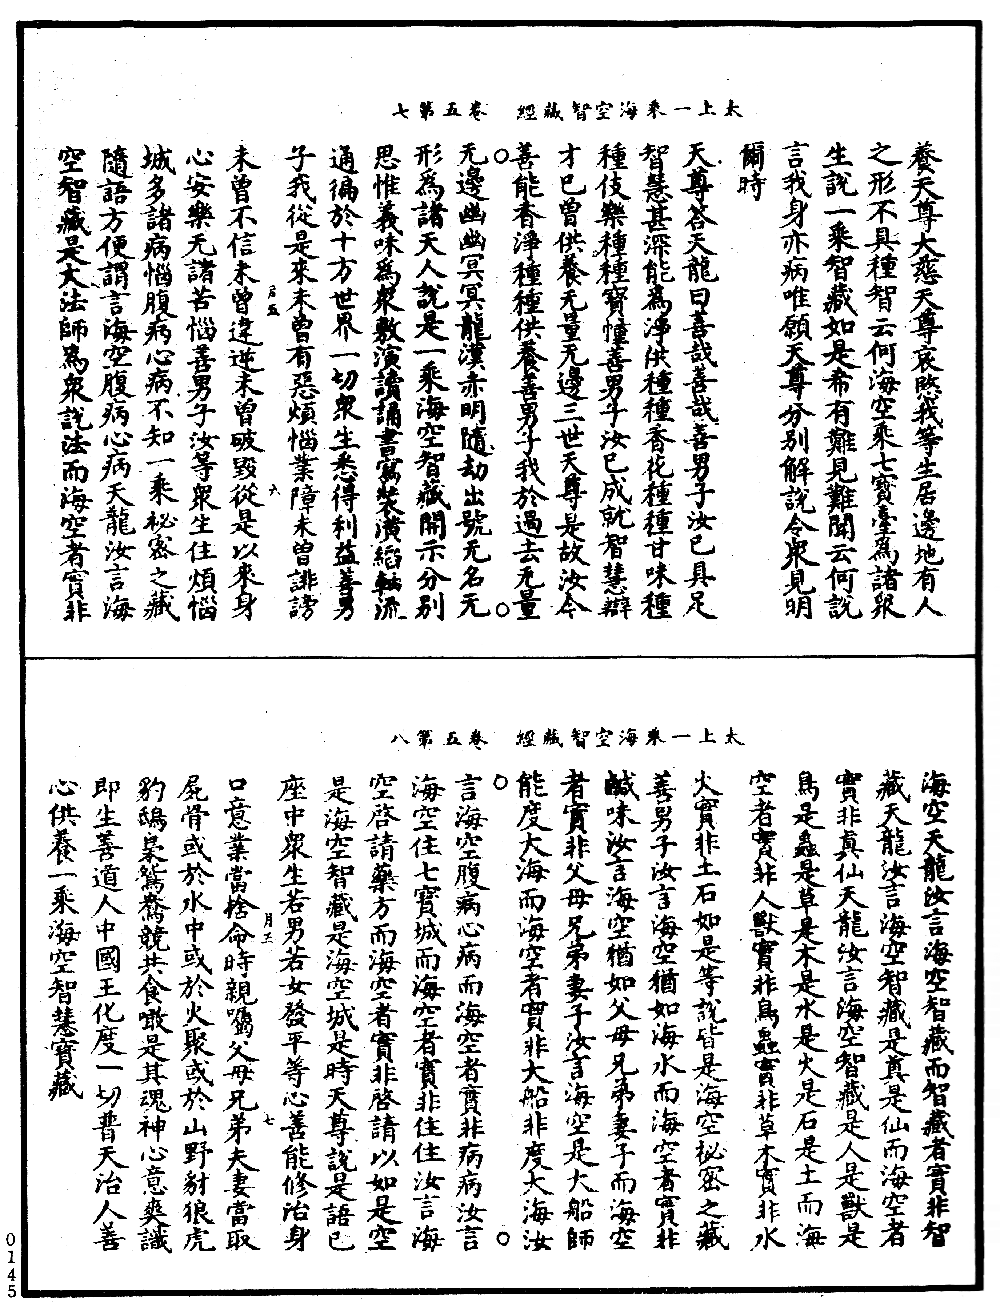 太上一乘海空智藏經　卷五第七
養天尊大慈天尊哀愍我等生居邊地有人
之形不具種智云何海空乘七寶臺為諸眾
生說一乘智藏如是希有難見難聞云何說
言我身亦病唯願天尊分別解說令眾見明
爾時
天尊荅天龍曰善哉善哉善男子汝已具足
智慧甚深能為淨供種種香花種種甘味種
種伎樂種種寶幢善男子汝已成就智慧辯
才已曾供養无量无邊三世天尊是故汝今
善能香淨種種供養善男子我於過去无量
无邊幽幽冥冥龍漢赤明隨劫出號无名无
形為諸天人說是一乘海空智藏開示分別
思惟義味為眾敷演讀誦書寫裝潢縚軸流
通徧於十方世界一切眾生悉得利益善男
子我從是來未曾有惡煩惱業障未曾誹謗
未曾不信未曾違逆未曾破毀從是以來身
心安樂无諸苦惱善男子汝等眾生住煩惱
城多諸病惱腹病心病不知一乘祕密之藏
隨語方便謂言海空腹病心病天龍汝言海
空智藏是大法師為眾說法而海空者實非
太上一乘海空智藏經　卷五第八
海空天龍汝言海空智藏而智藏者實非智
藏天龍汝言海空智藏是真是仙而海空者
實非真仙天龍汝言海空智藏是人是獸是
鳥是蟲是草是木是水是火是石是土而海
空者實非人獸實非鳥蟲實非草木實非水
火實非土石如是等說皆是海空祕密之藏
善男子汝言海空猶如海水而海空者實非
鹹味汝言海空猶如父母兄弟妻子而海空
者實非父母兄弟妻子汝言海空是大船師
能度大海而海空者實非大船非度大海汝
言海空腹病心病而海空者實非病病汝言
海空住七寶城而海空者實非住住汝言海
空啓請藥方而海空者實非啓請以如是空
是海空智藏是海空城是時天尊說是語已
座中眾生若男若女發平等心善能修治身
口意業當捨命時親囑父母兄弟夫妻當取
屍骨或於水中或於火聚或於山野豺狼虎
豹鴟梟鴛鴦競共食噉是其魂神心意爽識
即生善道人中國王化度一切普天治人善
心供養一乘海空智慧寶藏
0145